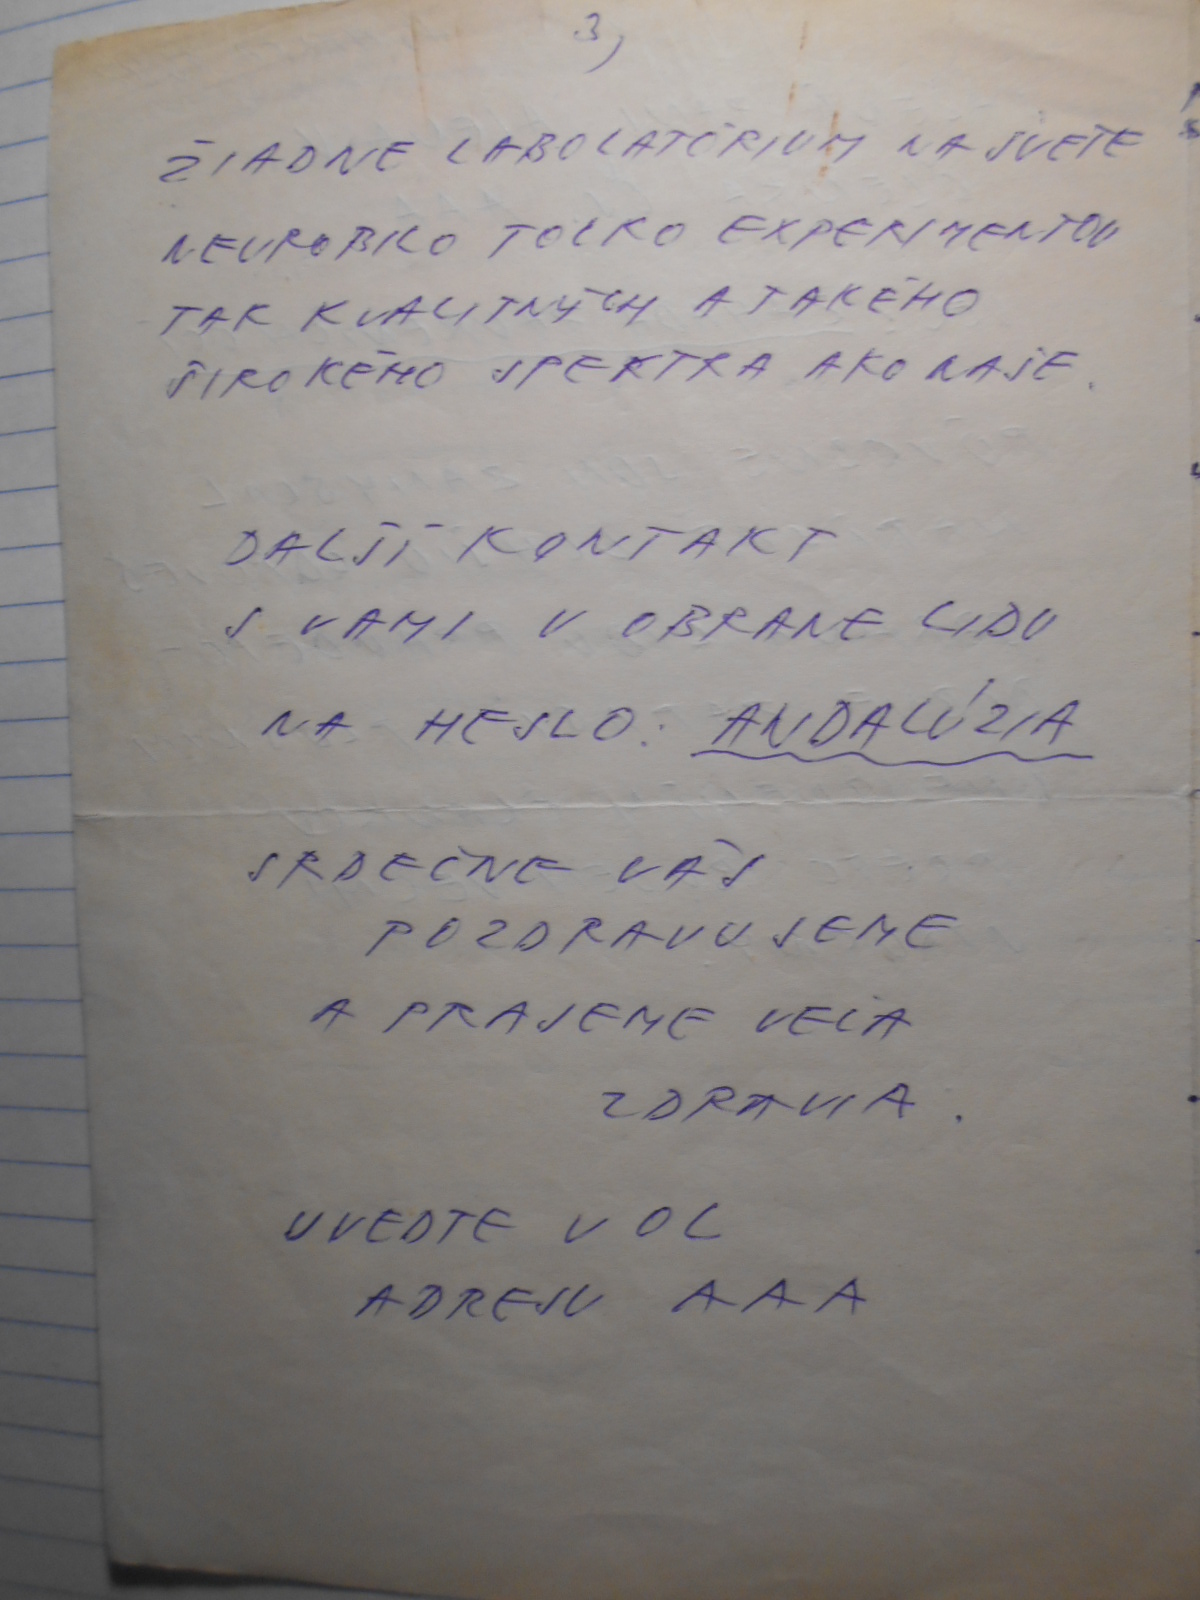 3)
ŽIADNE LABOLATÓRIUM NA SVETE
NEUROBILO TOLKO EXPERIMENTOV
TAK KVALITNÝCH A TAKÉHO
ŠIROKÉHO SPEKTRA AKO NAŠE.
DALŠÍ KONTAKT
S VAMI V OBRANE LIDU
NA HESLO: ANDALÚZIA
SRDEČNE VÁS
POZDRAVUJEME
A PRAJEME VEĽA
ZDRAVIA.
UVEDTE V OL
ADRESU AAA